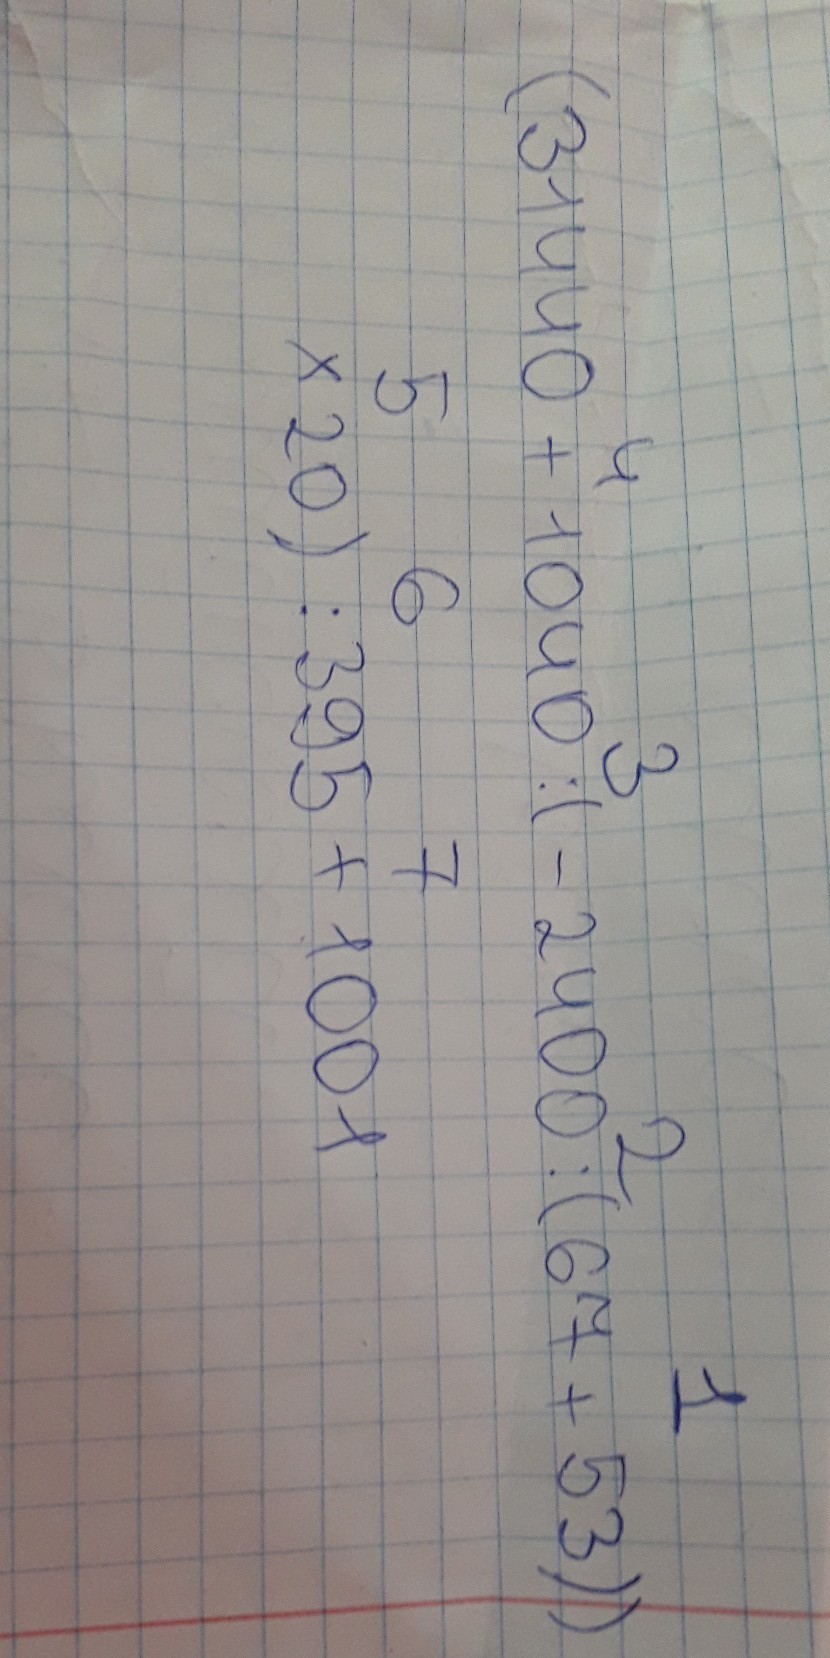 4 3 2 1
(31440 + 1040 :( - 2400 :(67 + 53))
5 6 7
x 20) : 395 + 1001